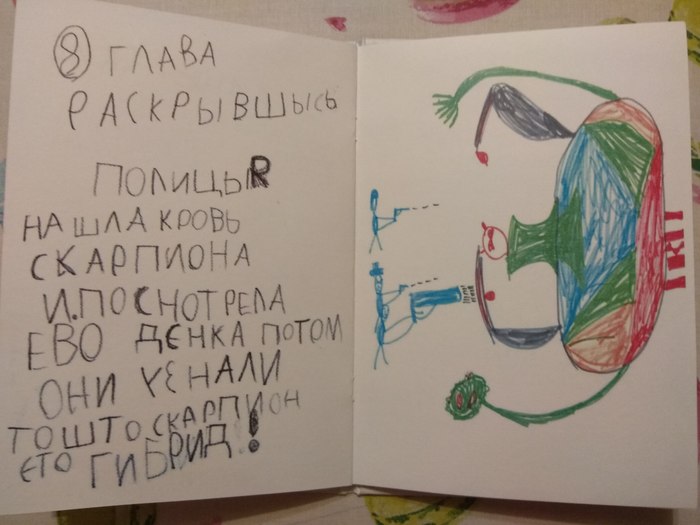 8 ГЛАВА
РАСКРЫВШЫСЬ
ПОЛИЦЫЯ
НАШЛА КРОВЬ
СКАРПИОНА
И.ПОСНОТРЕЛА
ЕВО ДЄНКА ПОТОМ
ОНИ УЄНАЛИ
ТОШТО СКАРПИОН
ЄТО ГИБРИД!